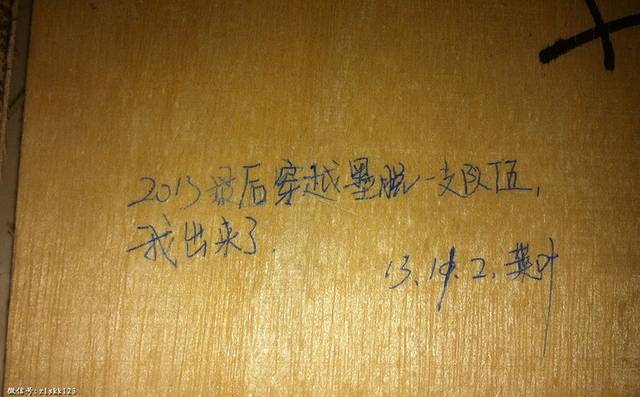 2013最后穿越墨脱一支队伍,
我出来了.
13.11.2.叶
微信号:zlskk123